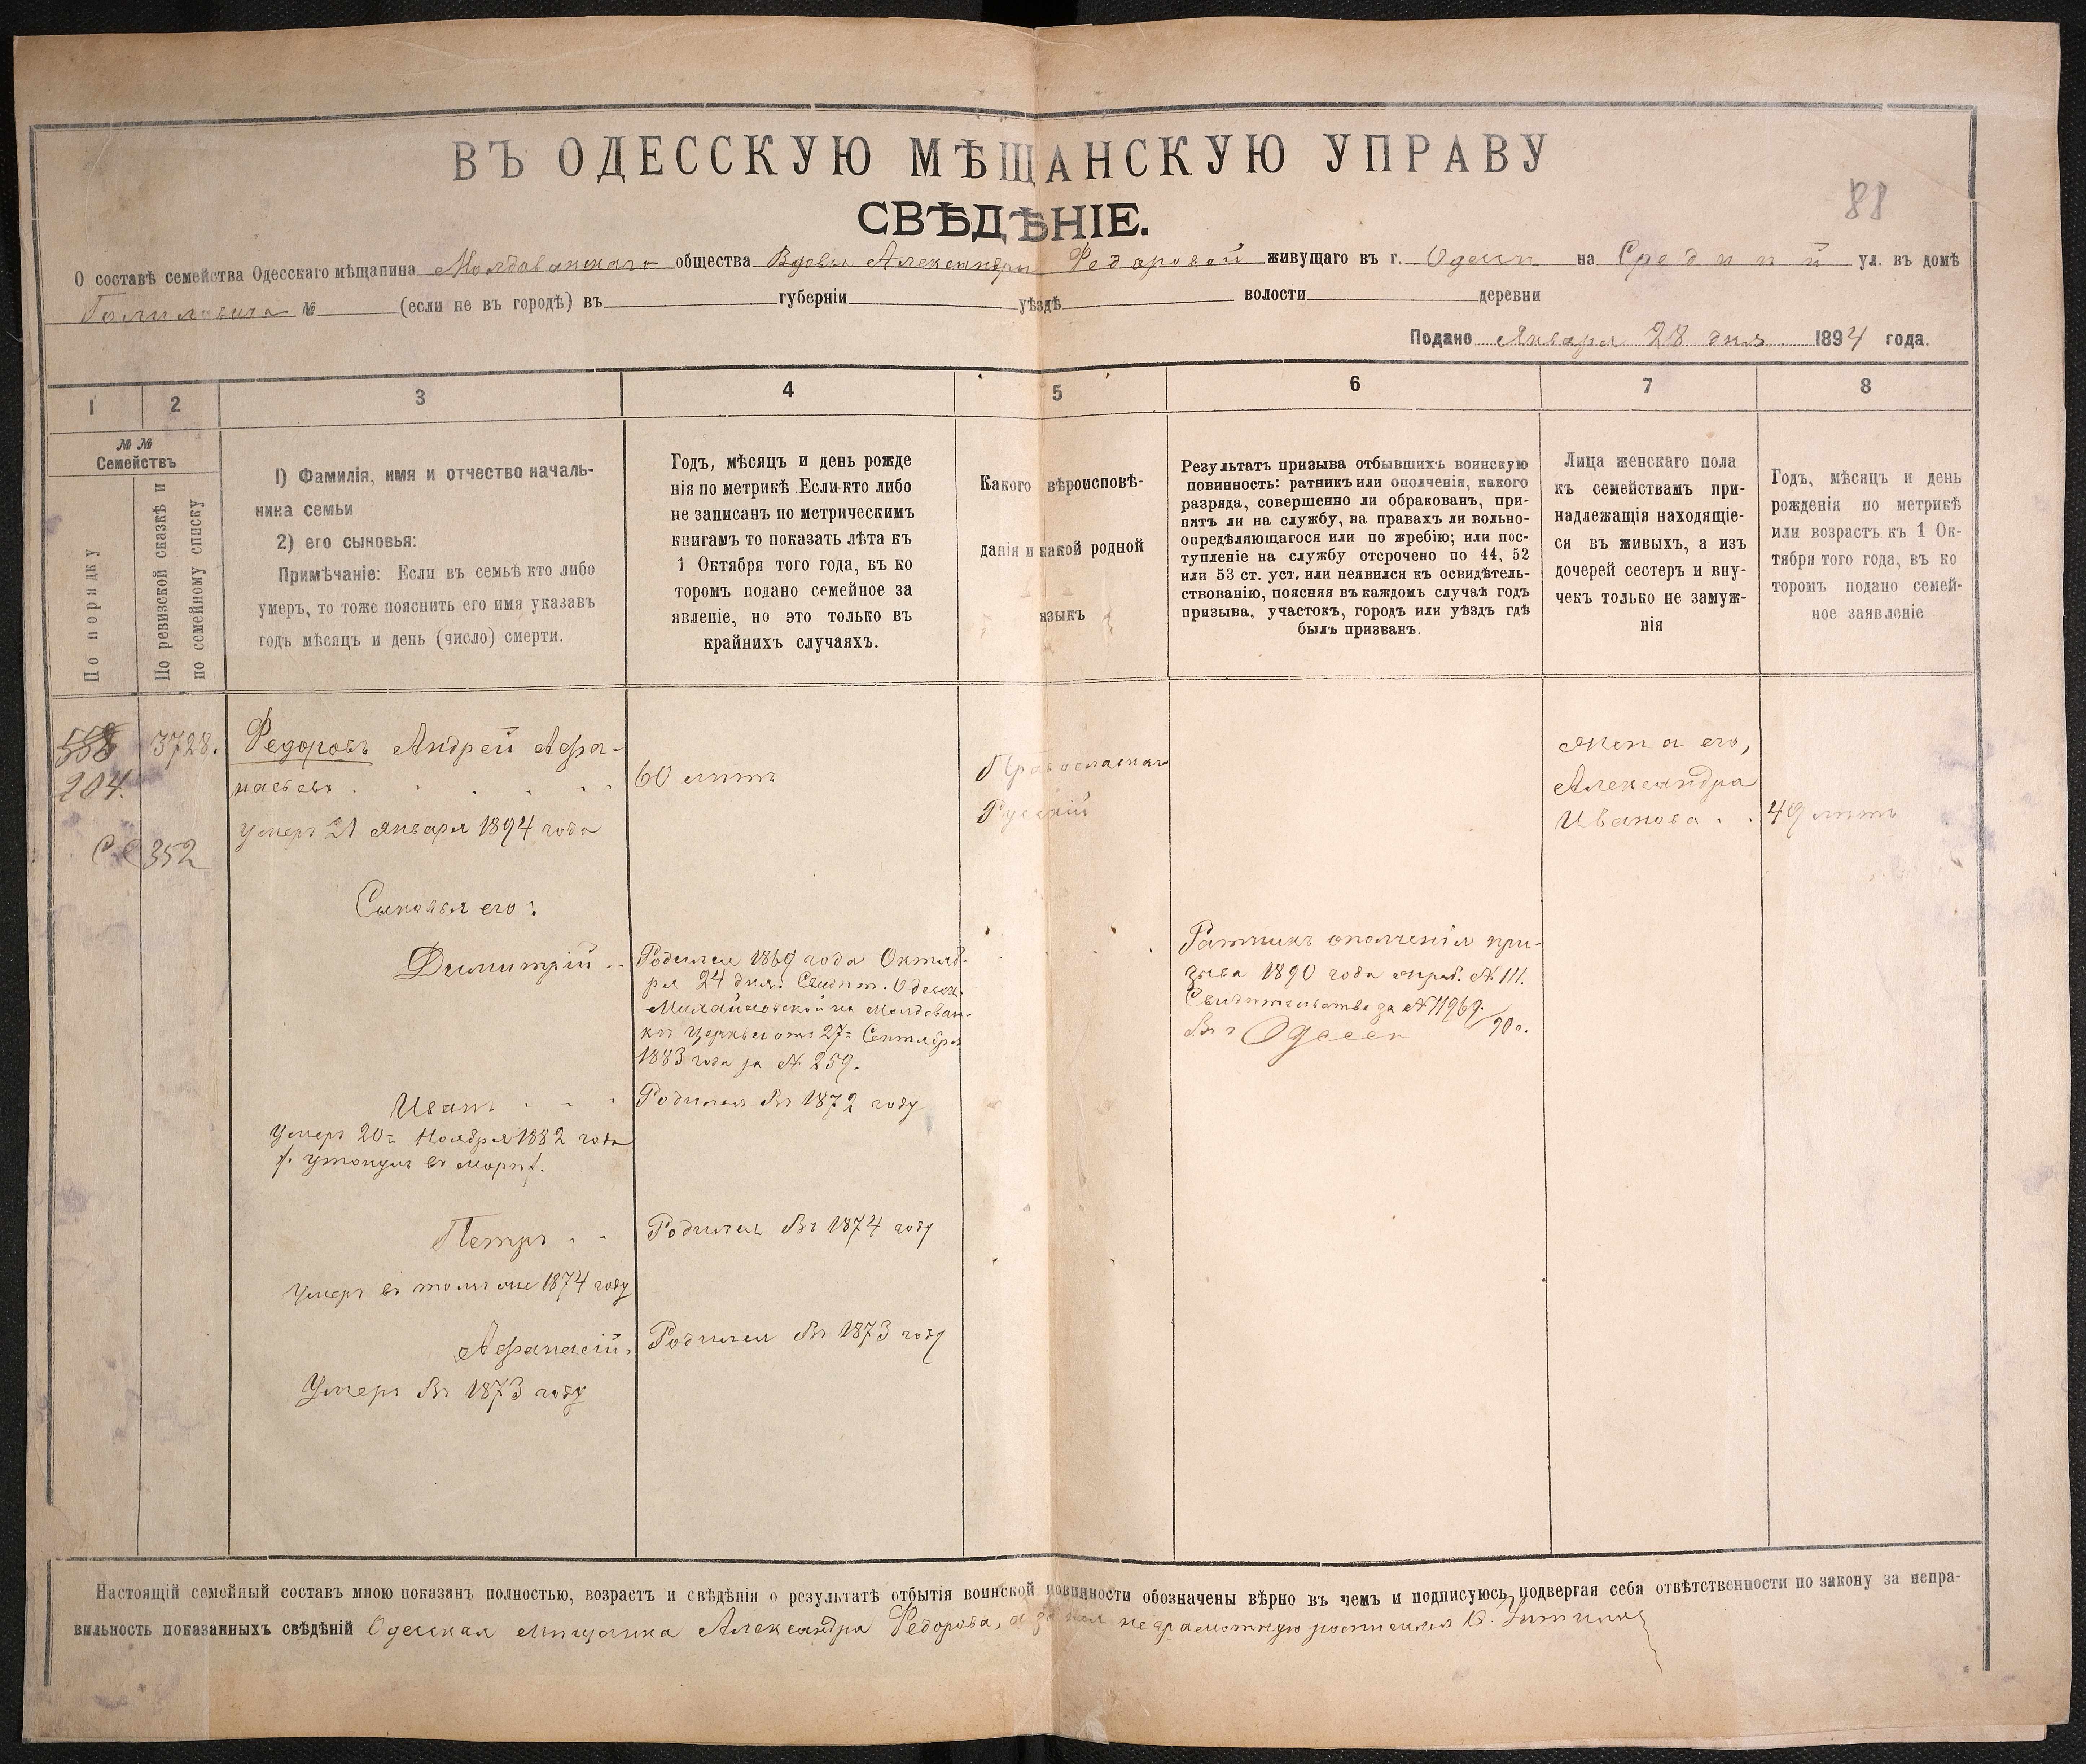 ВЪ ОДЕССКУЮ МѢЩАНСКУЮ УПРАВУ
88
СВѢДѢНІЕ.
О составѣ семейства Одесскаго мѣщанина Молдаванскаго общества Вдовы Александры Федоровой живущаго въ г. Одессѣ на Средней ул. въ домѣ
№ (если не въ городѣ) въ губерніи уѣздѣ волости деревни
Подано Января 28 дня 1894 года.
1 2 3 4 5 6 7 8
№ №
Семействъ
По порядку
По ревизской сказкѣ и
по семейному списку
1) Фамилія, имя и отчество началь-
ника семьи
2) его сыновья:
Примѣчаніе: Если въ семьѣ кто либо
умеръ, то тоже пояснить его имя указавъ
годъ мѣсяцъ и день (число) смерти.
Годъ, мѣсяцъ и день рожде
нія по метрикѣ Если кто либо
не записанъ по метрическимъ
книгамъ то показать лѣта къ
1 Октября того года, въ ко
торомъ подано семейное за
явленіе, но это только въ
крайнихъ случаяхъ.
Какого вѣроисповѣ-
данія и какой родной
языкъ
Результатъ призыва отбывшихъ воинскую
повинность: ратникъ или ополченія, какого
разряда, совершенно ли обракованъ, при-
нятъ ли на службу, на правахъ ли вольно-
опредѣляющагося или по жребію; или пос-
тупленіе на службу отсрочено по 44, 52
или 53 ст. уст. или неявился къ освидѣтель-
ствованію, поясняя въ каждомъ случаѣ годъ
призыва, участокъ, городъ или уѣздъ гдѣ
былъ призванъ.
Лица женскаго пола
къ семействамъ при-
надлежащія находящіе-
ся въ живыхъ, а изъ
дочерей сестеръ и вну-
чекъ только не замуж-
нія
Годъ, мѣсяцъ и день
рожденія по метрикѣ
или возрастъ къ 1 Ок-
тября того года, въ ко
торомъ подано семей-
ное заявленіе
558 3728. Федоровъ Андрей Афа-
204. насьевъ 60 лѣтъ
умеръ 21 Января 1894 года
С. 352
Православнаго
Русскій
Жена его,
Александра
Иванова 49 лѣтъ
Сыновья его:
Димитрій
Родился 1869 года Октяб-
ря 24 дня. Свидѣт. Одесск.
Михайловской на Молдован-
кѣ Церкви отъ 27 Сентября
1883 года за № 259.
Ратникъ ополченія при-
зыва 1890 года № 111.
Свидѣтельство за № 11969/90 г.
Въ г Одессѣ
Иванъ Родился въ 1872 году
Умеръ 20 Ноября 1882 года
утонулъ въ морѣ.
Петръ Родился въ 1874 году
Умеръ въ томъ же 1874 году
Афанасій Родился въ 1873 году
Умеръ въ 1873 году
Настоящій семейный составъ мною показанъ полностью, возрастъ и свѣдѣнія о результатѣ отбытія воинской повинности обозначены вѣрно въ чемъ и подписуюсь, подвергая себя отвѣтственности по закону за непра-
вильность показанныхъ свѣдѣній Одесская мѣщанка Александра Федорова, а за нея неграмотную росписался